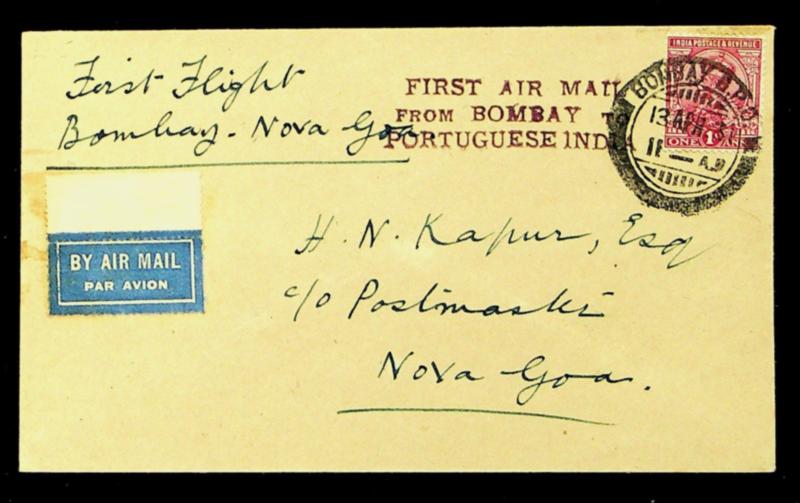 First Flight
Bombay - Nova Goa
FIRST AIR MAIL
FROM BOMBAY TO
PORTUGUESE INDIA
INDIA POSTAGE & REVENUE
ONE 1
BOMBAY G.P.O
13 APR 31
11 - A.M
BY AIR MAIL
PAR AVION
H. N. Kapur, Esq
c/o Postmaster
Nova Goa.